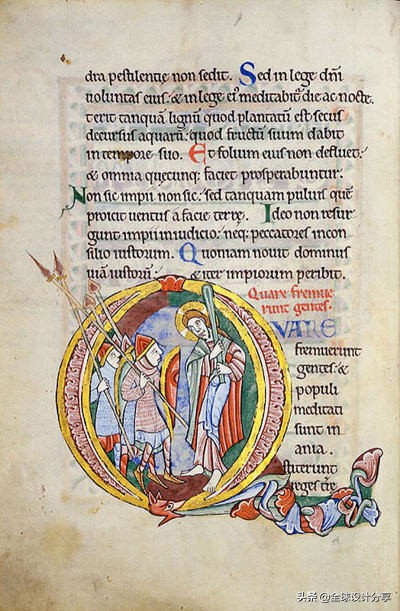 dra pestilentie non sedit. Sed in lege dnī
uoluntas eius: & in lege ei᾽ meditabit᾽ die ac nocte.
t erit tanquā lignū quod plantatū est secus
decursus aquarū: quod fructū suum dabit
in tempore suo. Et folium eius non defluet:
& omnia quecunq; faciet prosperabuntur.
Non sic impii non sic: sed tanquam puluis quē
proicit uentus a facie terrę. Ideo non resur
gunt impii in iudicio: neq; peccatores in con
silio iustorum. Quoniam nouit dominus
uiā iustorū & iter impiorum peribit.
Quare fremue
runt gentes.
QVARE
fremuerunt
gentes: &
populi
meditati
sunt in
ania.
stiterunt
reges
头条 @全球设计分享